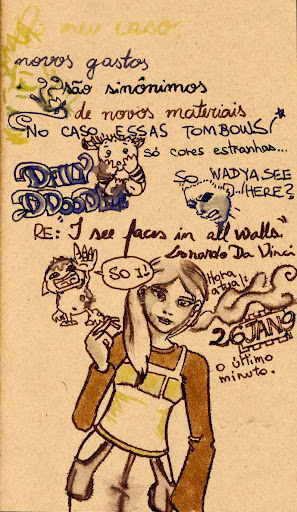 No meu caso,
novos gastos
são sinônimos
de novos materiais
NO CASO, ESSAS TOMBOWS!
só cores estranhas...
DAILY
DDOODLE
SO... WADYA SEE
HERE?
RE: "I see faces in all walls."
Leonardo Da Vinci
SO I!
Hora
atual:
26JAN09
o último
minuto.